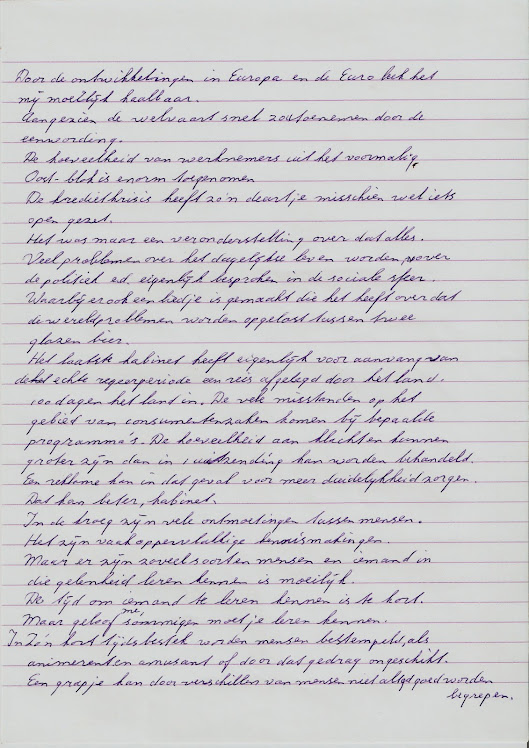 Door de ontwikkelingen in Europa en de Euro leek het
mij moeilijk haalbaar.
Aangezien de welvaart snel zou toenemen door de
eenwording.
De hoeveelheid van werknemers uit het voormalig
Oost-blok is enorm toegenomen
De kredietkrisis heeft zo'n deurtje misschien wel iets
open gezet.
Het was maar een veronderstelling over dat alles.
Veel problemen over het dagelijkse leven worden over
de politiek ed. eigenlijk besproken in de sociale sfeer.
Waarbij er ook een liedje is gemaakt die het heeft over dat
de wereldproblemen worden opgelost tussen twee
glazen bier.
Het laatste kabinet heeft eigenlijk voor aanvang van
de echte regeerperiode een reis afgelegd door het land.
100 dagen het land in. De vele misstanden op het
gebiet van consumentenzaken komen bij bepaalde
programma's. De hoeveelheid aan klachten kunnen
groter zijn dan in 1 uitzending kan worden behandeld.
Een reklame kan in dat geval voor meer duidelijkheid zorgen.
Dat kan beter, kabinet.
In de kroeg zijn vele ontmoetingen tussen mensen.
Het zijn vaak oppervlakkige kennismakingen.
Maar er zijn zoveel soorten mensen en iemand in
die gelenheid leren kennen is moeilijk.
De tijd om iemand te leren kennen is te kort.
Maar geloof me, sommigen moet je leren kennen.
In zo'n kort tijdsbestek worden mensen bestempeld, als
animerent en amusant of door dat gedrag ongeschikt.
Een grapje kan door verschillen van mensen niet altijd goed worden
begrepen.